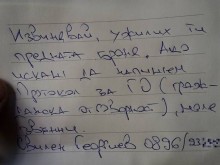 Извинявай, ужулих ти
предната броня. Ако
искаш да напишем
Протокол за ГО (граж-
отговорност), моля
Георгиев 0896/